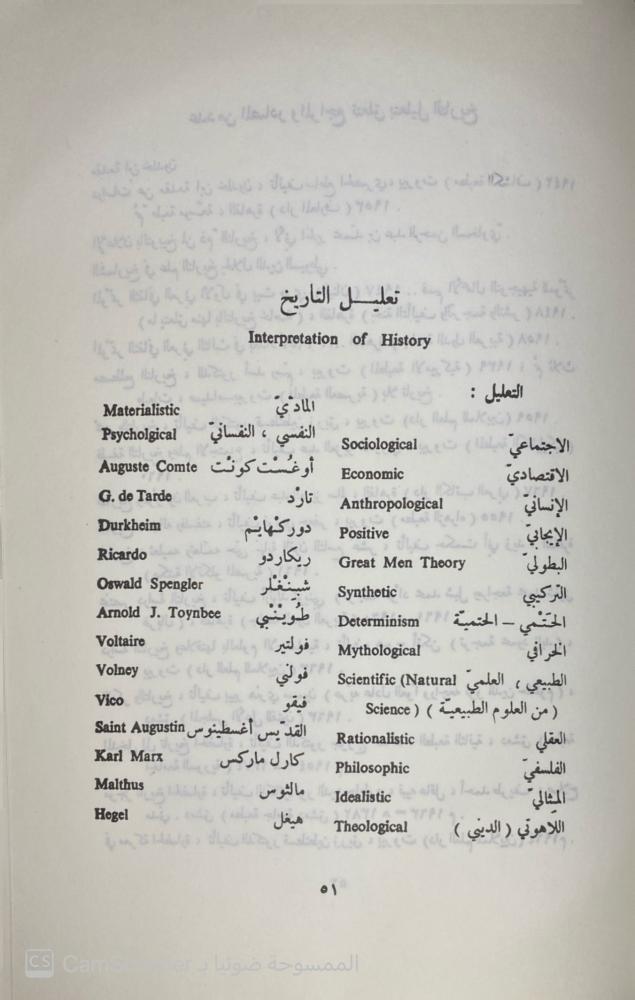 تعليل التاريخ
Interpretation of History
التعليل :
الاجتماعيّ Sociological
الاقتصاديّ Economic
الإنسانيّ Anthropological
الإيجابيّ Positive
البطوليّ Great Men Theory
التركيبيّ Synthetic
الحَتْمي – الحتميّة Determinism
الخرافي Mythological
الطبيعي ، العلميّ Scientific (Natural
( من العلوم الطبيعيّة ) Science )
العقلي Rationalistic
الفلسفيّ Philosophic
المِثاليّ Idealistic
اللاهوتي ( الديني ) Theological
المادّيّ Materialistic
النفسي ، النفسانيّ Psycholgical
أوغُسْت كونْت Auguste Comte
تارْد G. de Tarde
دوركْهايْم Durkheim
ريكاردو Ricardo
شبِينْغْلر Oswald Spengler
طُويْنْبي Arnold J. Toynbee
فولتير Voltaire
فولني Volney
فيقو Vico
القدّيس أغسطينوس Saint Augustin
كارل ماركس Karl Marx
مالثوس Malthus
هيغل Hegel
٥١
CS CamScanner الممسوحة ضوئيا بـ